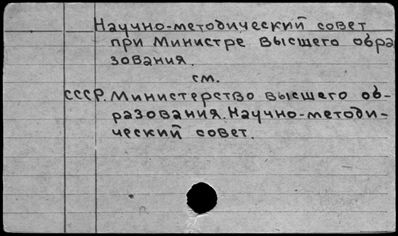 Научно-методический совет
при Министре высшего обра
зования.
см.
СССР. Министерство высшего об-
разования. Научно-методи-
ческий совет.